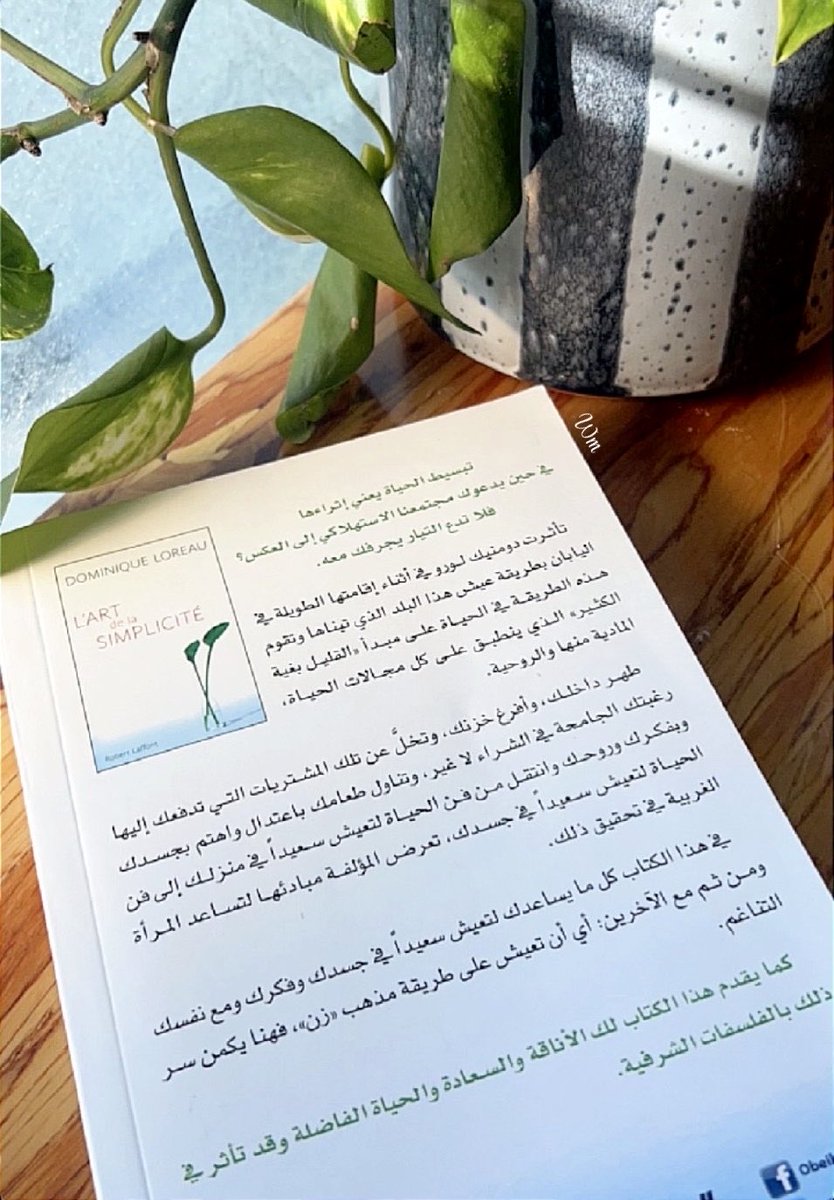 تبسيط الحياة يعني إثراءها
في حين يدعوك مجتمعنا الاستهلاكي إلى العكس؟
فلا تدع التيار يجرفك معه.
DOMINIQUE LOREAU
L'ART
de la
SIMPLICITÉ
Robert Laffont
تأثرت دومنيك لورو في أثناء إقامتها الطويلة في
اليابان بطريقة عيش هذا البلد الذي تبناها وتقوم
هذه الطريقة في الحياة على مبدأ «القليل بغية
الكثير» الذي ينطبق على كل مجالات الحياة،
المادية منها والروحية.
طهر داخلك، وأفرغ خزنك، وتخلَّ عن تلك المشتريات التي تدفعك إليها
رغبتك الجامحة في الشراء لا غير، وتناول طعامك باعتدال واهتم بجسدك
وبفكرك وروحك وانتقل من فن الحياة لتعيش سعيداً في منزلك إلى فن
الحياة لتعيش سعيداً في جسدك، تعرض المؤلفة مبادئها لتساعد المرأة
الغربية في تحقيق ذلك.
في هذا الكتاب كل ما يساعدك لتعيش سعيداً في جسدك وفكرك ومع نفسك
ومن ثم مع الآخرين: أي أن تعيش على طريقة مذهب «زن»، فهنا يكمن سر
التناغم.
كما يقدم هذا الكتاب لك الأناقة والسعادة والحياة الفاضلة وقد تأثر في
ذلك بالفلسفات الشرقية.
Wm